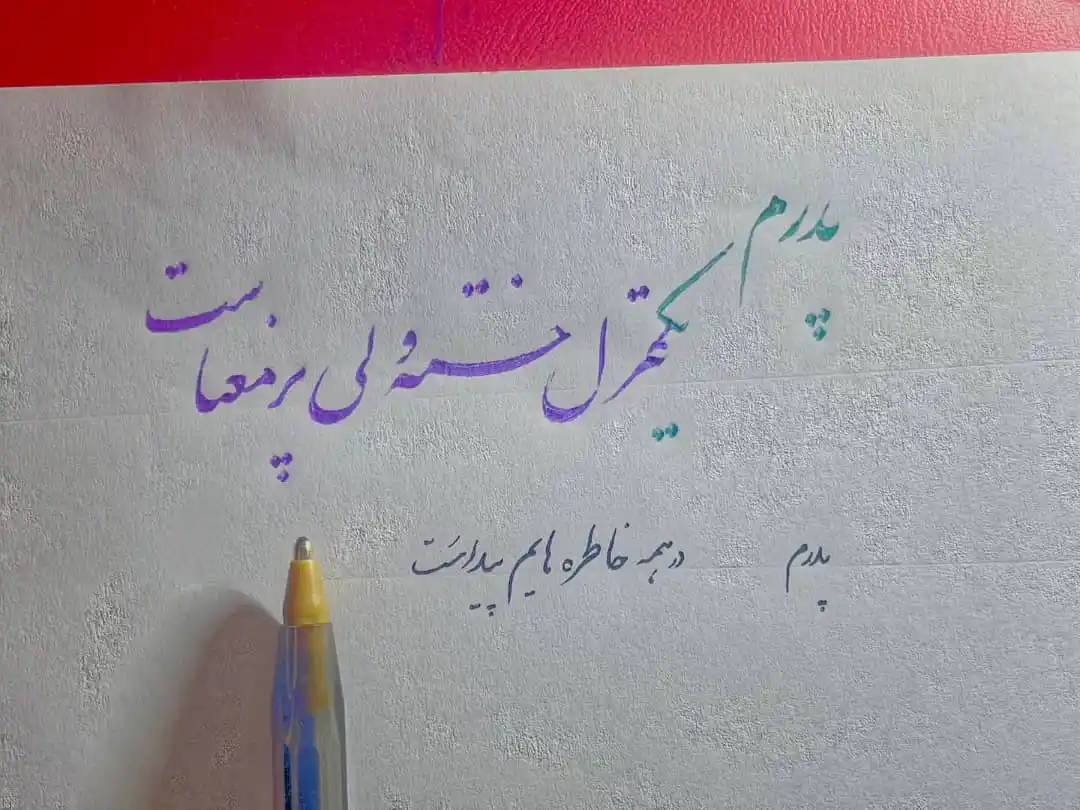 پدرم یک غزل خسته ولی پر معناست
پدرم در همه خاطره هایم پیداست